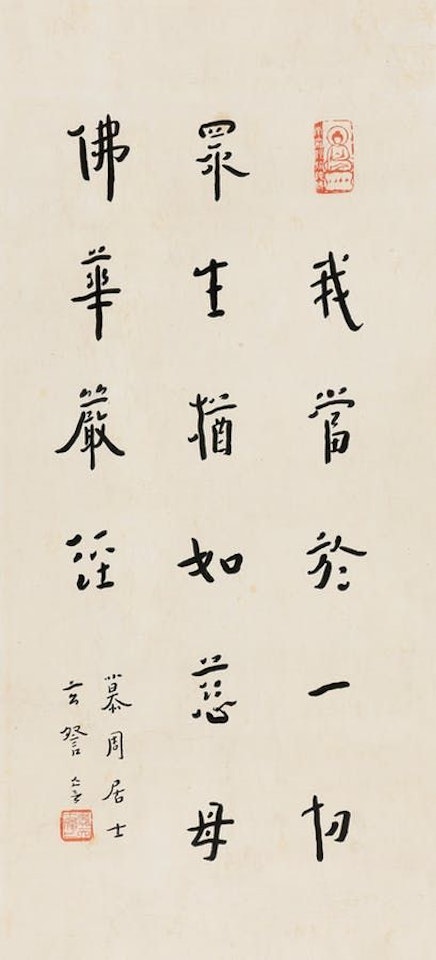 我當於一切
眾生猶如慈母
佛華嚴經
慕周居士
玄詧